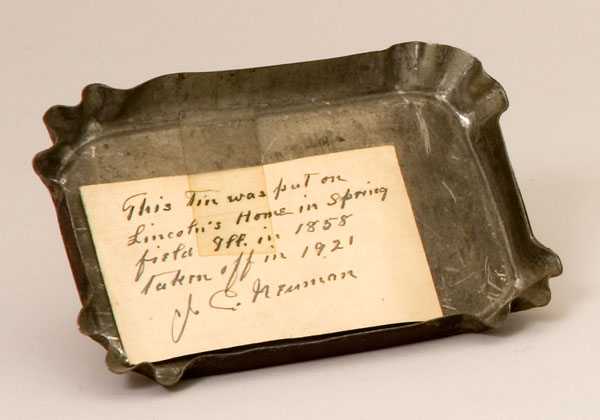 This Tin was put on
Lincoln's Home in Spring
field Ill. in 1858
taken off in 1921
J. C. Neuman